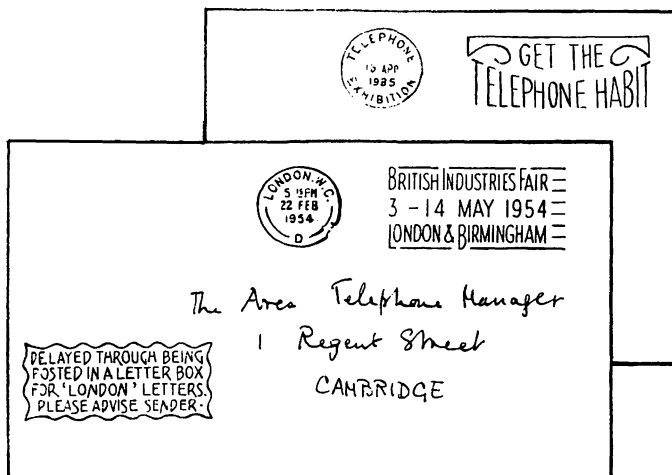 TELEPHONE
15 APR
1935
EXHIBITION
GET THE
TELEPHONE HABIT
LONDON. W.C.
5 15 PM
22 FEB
1954
D
BRITISH INDUSTRIES FAIR
3 - 14 MAY 1954
LONDON & BIRMINGHAM
The Area Telephone Manager
1 Regent Street
CAMBRIDGE
DELAYED THROUGH BEING
POSTED IN A LETTER BOX
FOR 'LONDON' LETTERS.
PLEASE ADVISE SENDER.